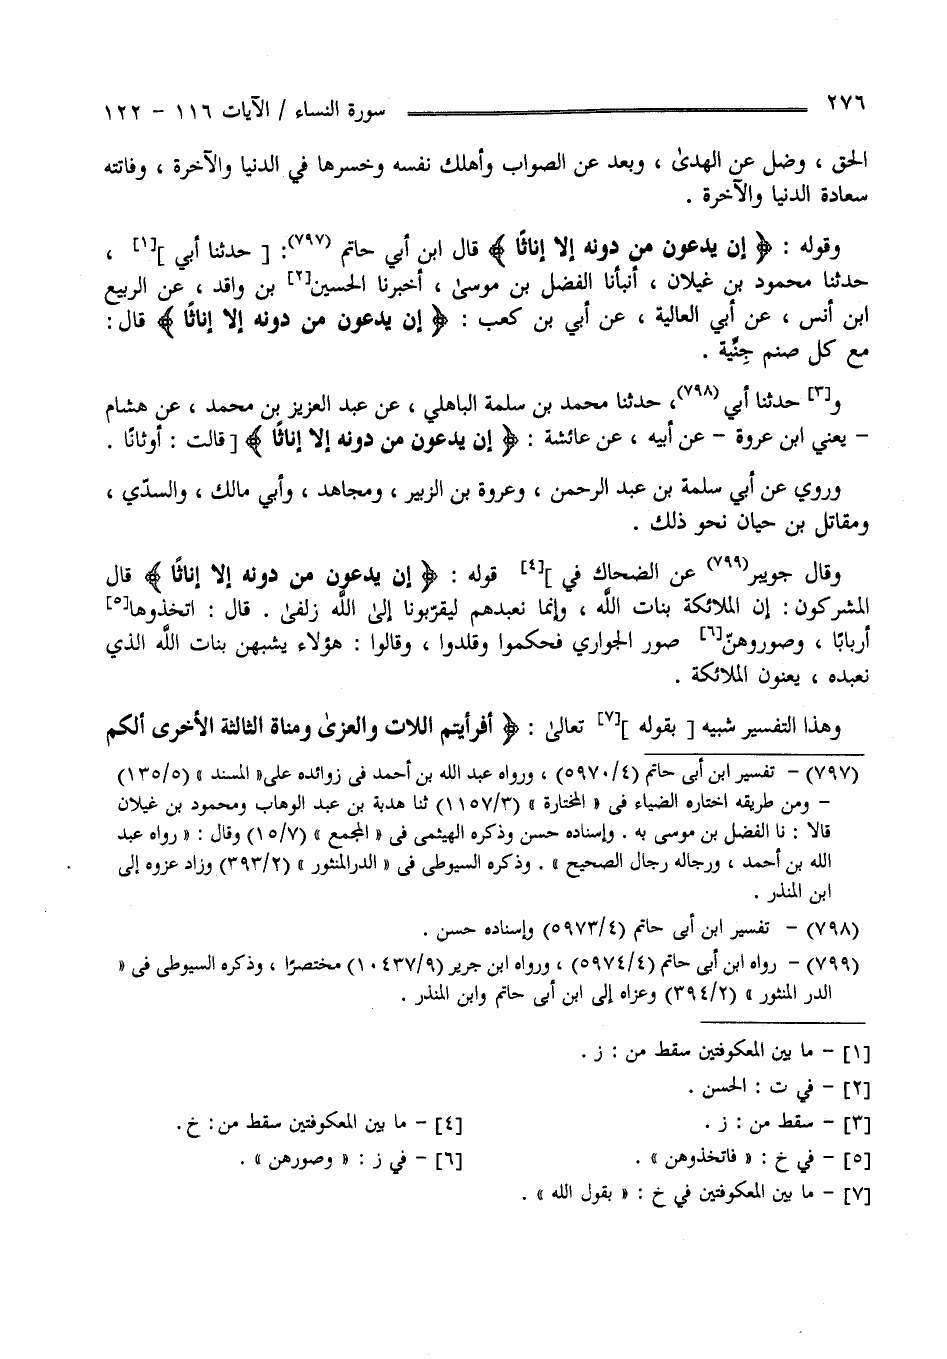 ٢٧٦ سورة النساء / الآيات ١١٦ - ١٢٢
الحق ، وضل عن الهدىٰ ، وبعد عن الصواب وأهلك نفسه وخسرها في الدنيا والآخرة ، وفاتته
سعادة الدنيا والآخرة .
وقوله : ﴿ إن يدعون من دونه إلا إناثًا ﴾ قال ابن أبي حاتم (٧٩٧): [ حدثنا أبي ][١] ،
حدثنا محمود بن غيلان ، أنبأنا الفضل بن موسىٰ ، أخبرنا الحسين[٢] بن واقد ، عن الربيع
ابن أنس ، عن أبي العالية ، عن أبي بن كعب : ﴿ إن يدعون من دونه إلا إناثًا ﴾ قال :
مع كل صنم جِنِّية .
و[٣] حدثنا أبي (٧٩٨)، حدثنا محمد بن سلمة الباهلي ، عن عبد العزيز بن محمد ، عن هشام
- يعني ابن عروة - عن أبيه ، عن عائشة : ﴿ إن يدعون من دونه إلا إناثًا ﴾ [ قالت : أوثانًا .
وروي عن أبي سلمة بن عبد الرحمن ، وعروة بن الزبير ، ومجاهد ، وأبي مالك ، والسدّي ،
ومقاتل بن حيان نحو ذلك .
وقال جويبر(٧٩٩) عن الضحاك في ][٤] قوله : ﴿ إن يدعون من دونه إلا إناثًا ﴾ قال
المشركون : إن الملائكة بنات اللَّه ، وإنما نعبدهم ليقرّبونا إلىٰ اللَّه زلفىٰ . قال : اتخذوها[٥]
أربابًا ، وصوروهنّ[٦] صور الجواري فحكموا وقلدوا ، وقالوا : هؤلاء يشبهن بنات اللَّه الذي
نعبده ، يعنون الملائكة .
وهذا التفسير شبيه [ بقوله ][٧] تعالىٰ : ﴿ أفرأيتم اللات والعزىٰ ومناة الثالثة الأخرى ألكم
(٧٩٧) - تفسير ابن أبى حاتم (٥٩٧٠/٤) ، ورواه عبد الله بن أحمد فى زوائده على« المسند » (١٣٥/٥)
- ومن طريقه اختاره الضياء فى « المختارة » (١١٥٧/٣) ثنا هدبة بن عبد الوهاب ومحمود بن غيلان
قالا : نا الفضل بن موسى به . وإسناده حسن وذكره الهيثمى فى « المجمع » (١٥/٧) وقال : « رواه عبد
الله بن أحمد ، ورجاله رجال الصحيح » . وذكره السيوطى فى « الدرالمنثور » (٣٩٣/٢) وزاد عزوه إلى
ابن المنذر .
(٧٩٨) - تفسير ابن أبى حاتم (٥٩٧٣/٤) وإسناده حسن .
(٧٩٩) - رواه ابن أبى حاتم (٥٩٧٤/٤) ، ورواه ابن جرير (١٠٤٣٧/٩) مختصرًا ، وذكره السيوطى فى «
الدر المنثور » (٣٩٤/٢) وعزاه إلى ابن أبى حاتم وابن المنذر .
[١] - ما بين المعكوفتين سقط من : ز .
[٢] - في ت : الحسن .
[٣] - سقط من : ز . [٤] - ما بين المعكوفتين سقط من : خ .
[٥] - في خ : « فاتخذوهن » . [٦] - في ز : « وصورهن » .
[٧] - ما بين المعكوفتين في خ : « بقول الله » .